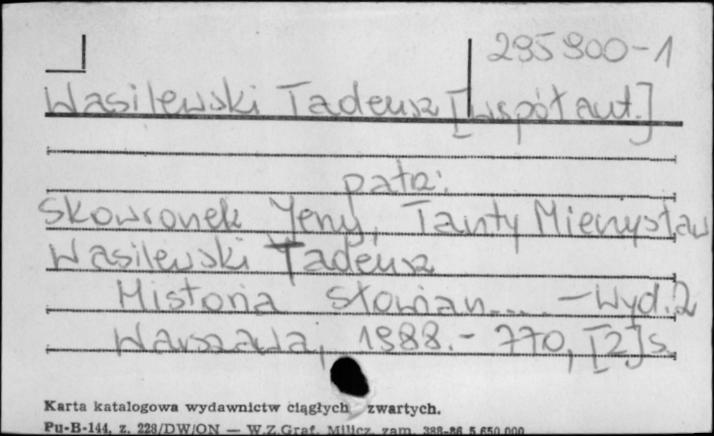 295900-1
Wasilewski Tadeusz [współaut.]
patrz:
Skowronek Jerzy, Tanty Mieczysław
Wasilewski Tadeusz
Historia słowian.... - Wyd. 2
Warszawa, 1988. - 770, [2] s.
Karta katalogowa wydawnictw ciągłych zwartych.
Pu-B-144, z. 228/DW/ON — W.Z.Graf. Milicz, zam. 388-86 5.650.000